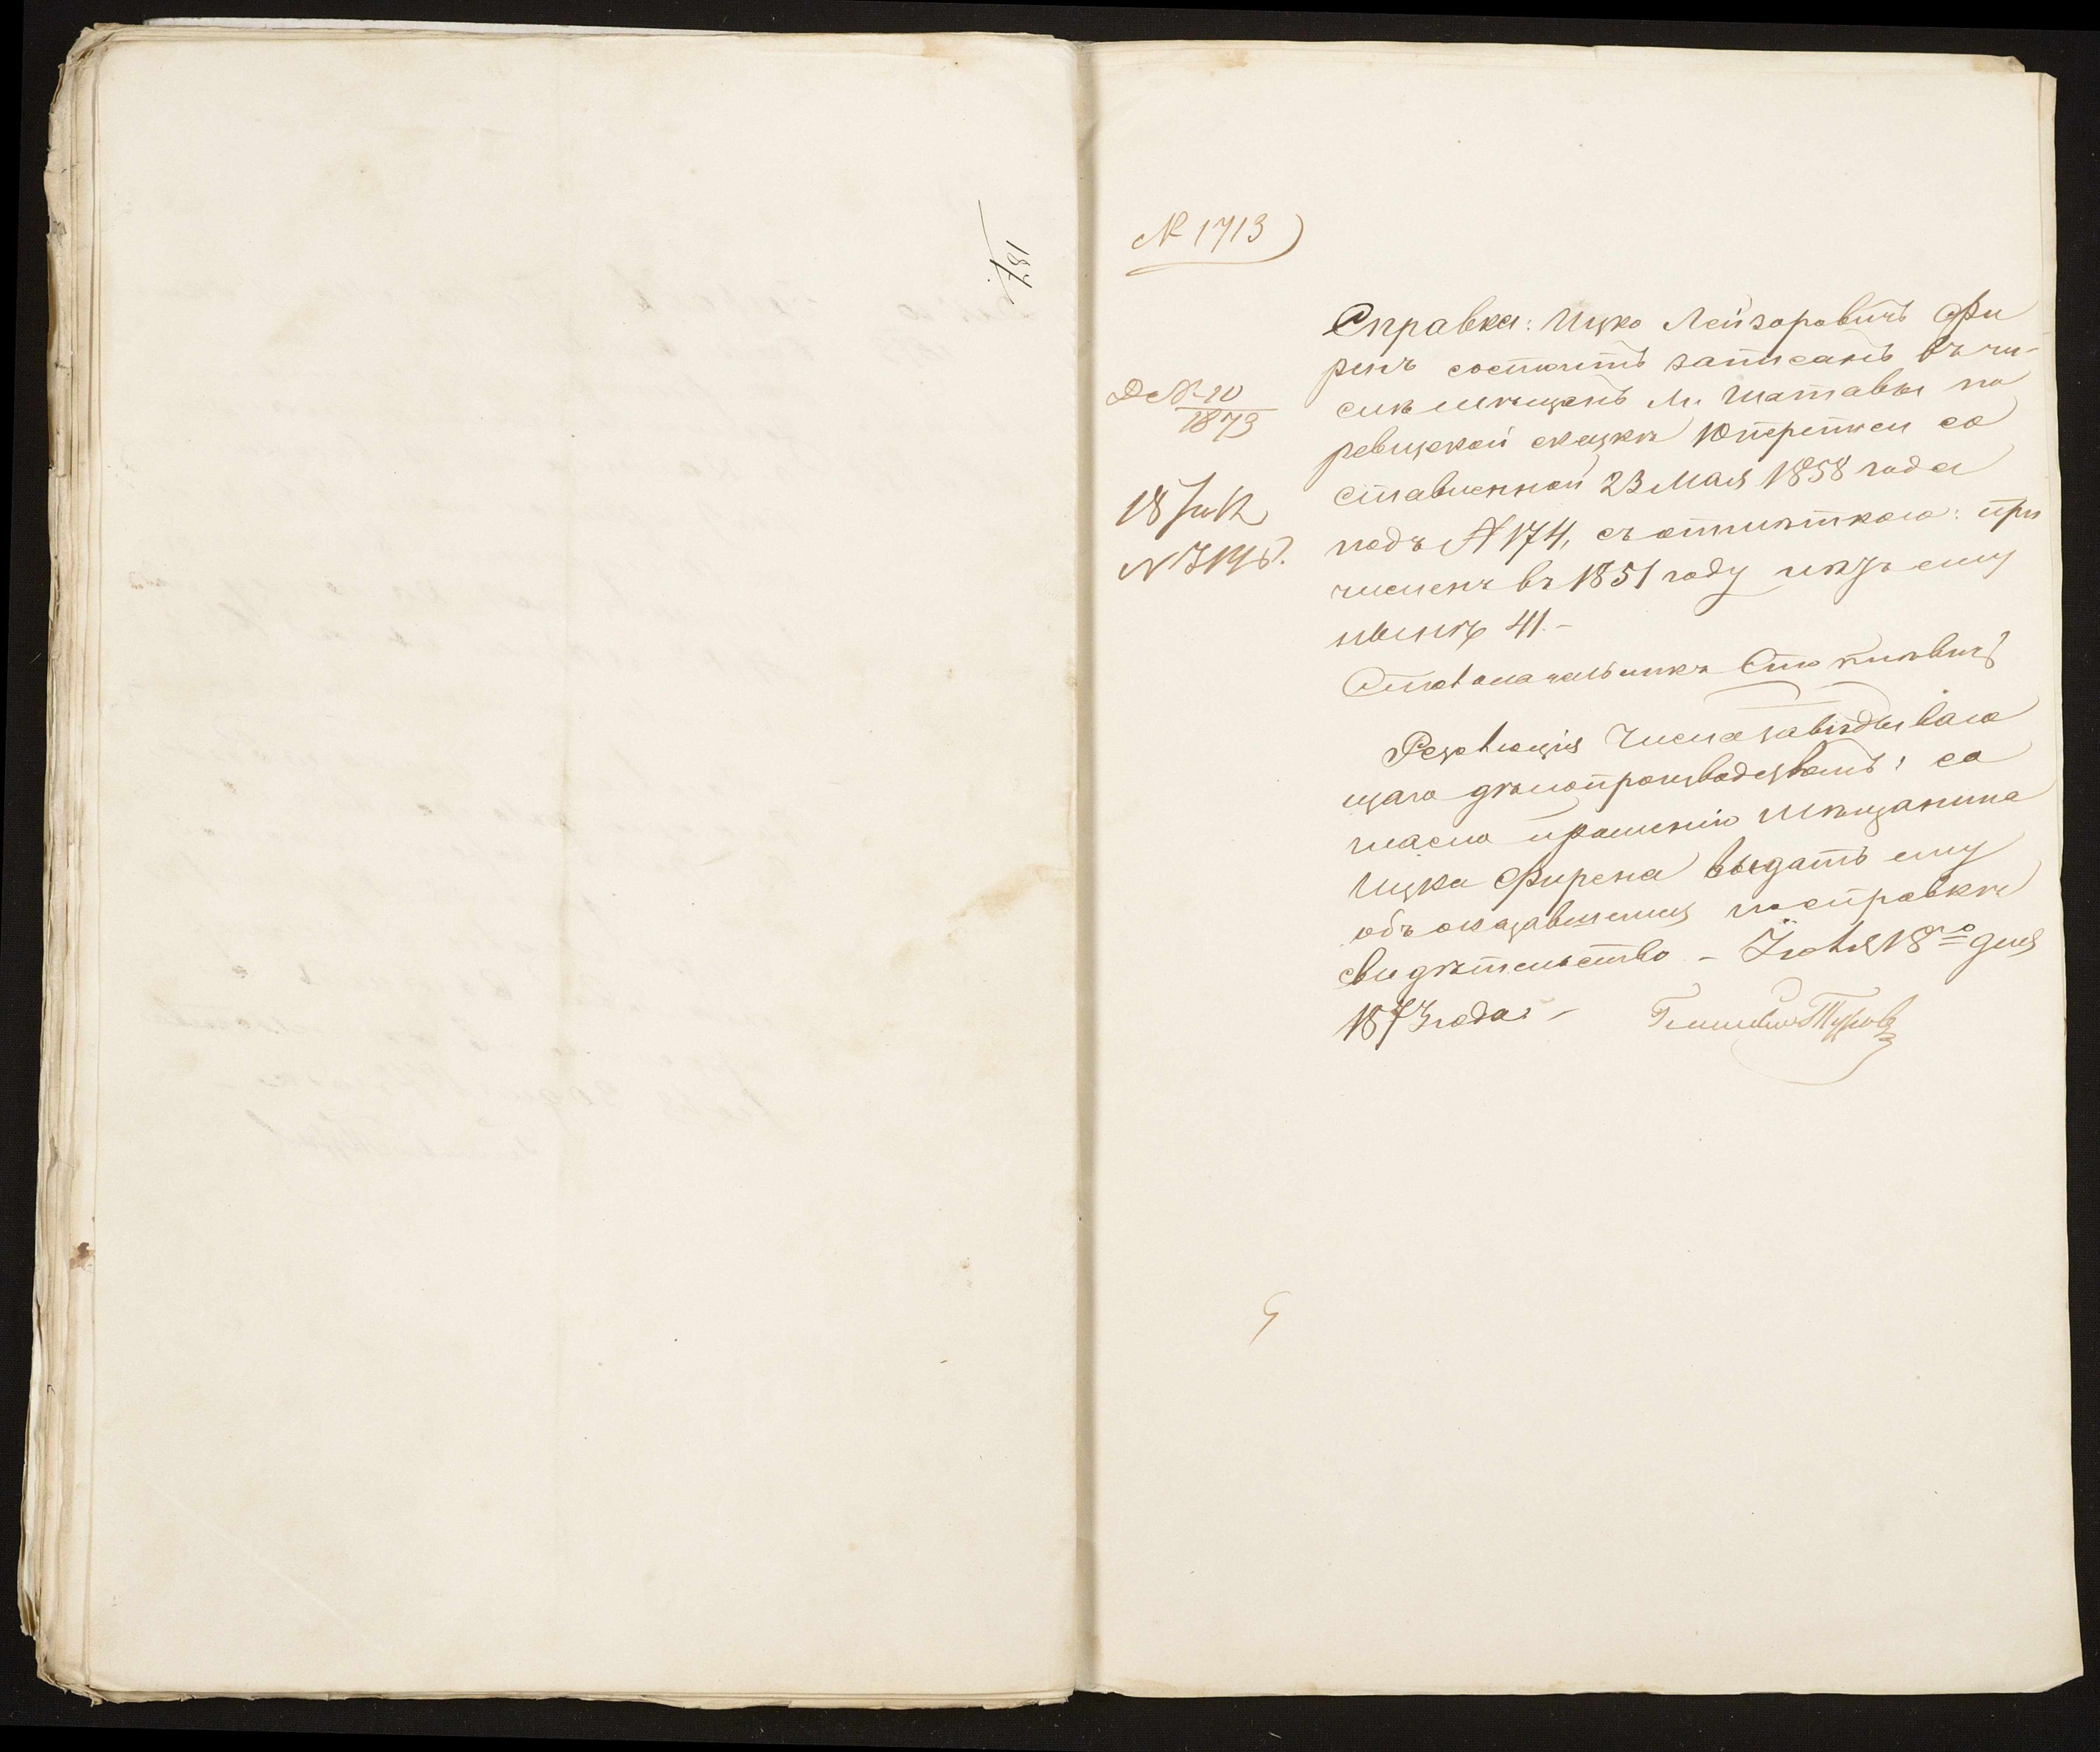 157
№ 1713
Д № 20
1873
18 Іюля
№
Справка: Ицко Лейзоровичъ Фи
ренъ состоитъ записанъ въ чи-
слѣ мѣщанъ м. Шатавы по
ревизской сказкѣ 10 переписи со
ставленной 23 Мая 1858 года
подъ № 174, съ отмѣткою: при
численъ въ 1851 году и къ ему
нынѣ 41.–
Столоначальникъ
Резолюція Члена завѣдываю
щаго дѣлопроизводствомъ: со
гласно прошенію мѣщанина
Ицка Фирена выдать ему
объ оказавшемся по справкѣ
свидѣтельство – Іюля 18го дня
1873 года. –